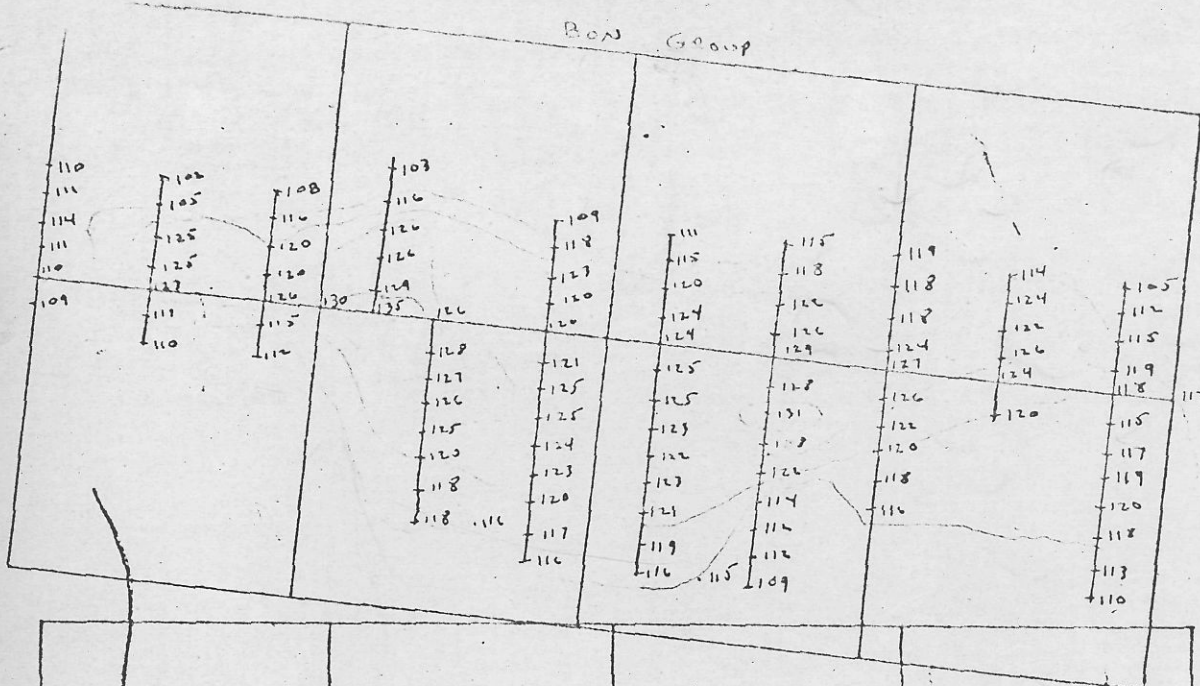 BON GROUP
110
111
114
111
110
109
105
125
125
110
108
116
120
120
126
115
112
130
103
116
126
126
129
135
126
128
127
126
125
120
118
118
116
109
118
123
120
120
121
125
125
124
123
120
117
116
111
115
120
124
124
125
125
123
122
123
121
119
116
115
115
118
122
126
129
128
131
122
114
112
109
119
118
118
124
127
126
122
120
118
116
114
124
122
126
124
120
105
112
115
119
118
115
117
119
120
118
113
110